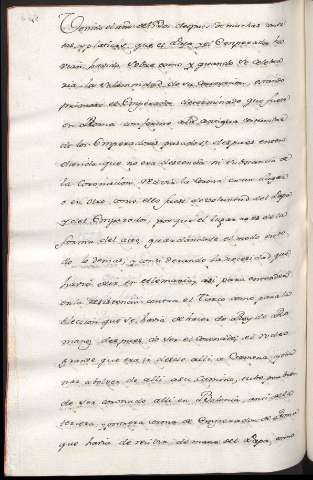 Venido el año de 1530 despues de muchas cartas
y platicas, que el Papa y el Emperador ha
vian havido sobre como y quando se celebra
ria la solemnidad de su coronacion, estando
primero el Emperador determinado que fuese
en Roma conforme a la antigua costumbre
de los Emperadores pasados; despues enten
diendo que no era de esencia ni substancia de
la coronacion, recivir la corona en un lugar
o en otro, como ello fuese de voluntad del Papa
y del Emperador, porque el lugar no es de la
forma del acto, guardandose el modo en to
do lo demas, y considerando la necesidad que
havia de ir en Alemania, asi para entender
en la resistencia contra el Turco como para la
eleccion que se havia de hacer de Rey de Ro
manos despues de ser el coronado, el rodeo
grande que era ir desde alli a Roma,
volver de alli a su camino, tubo por bien
de ser coronado alli en Bolonia, asi de la
tercera y primera corona de Emperador de Roma
que havia de recivir de mano del Papa, como